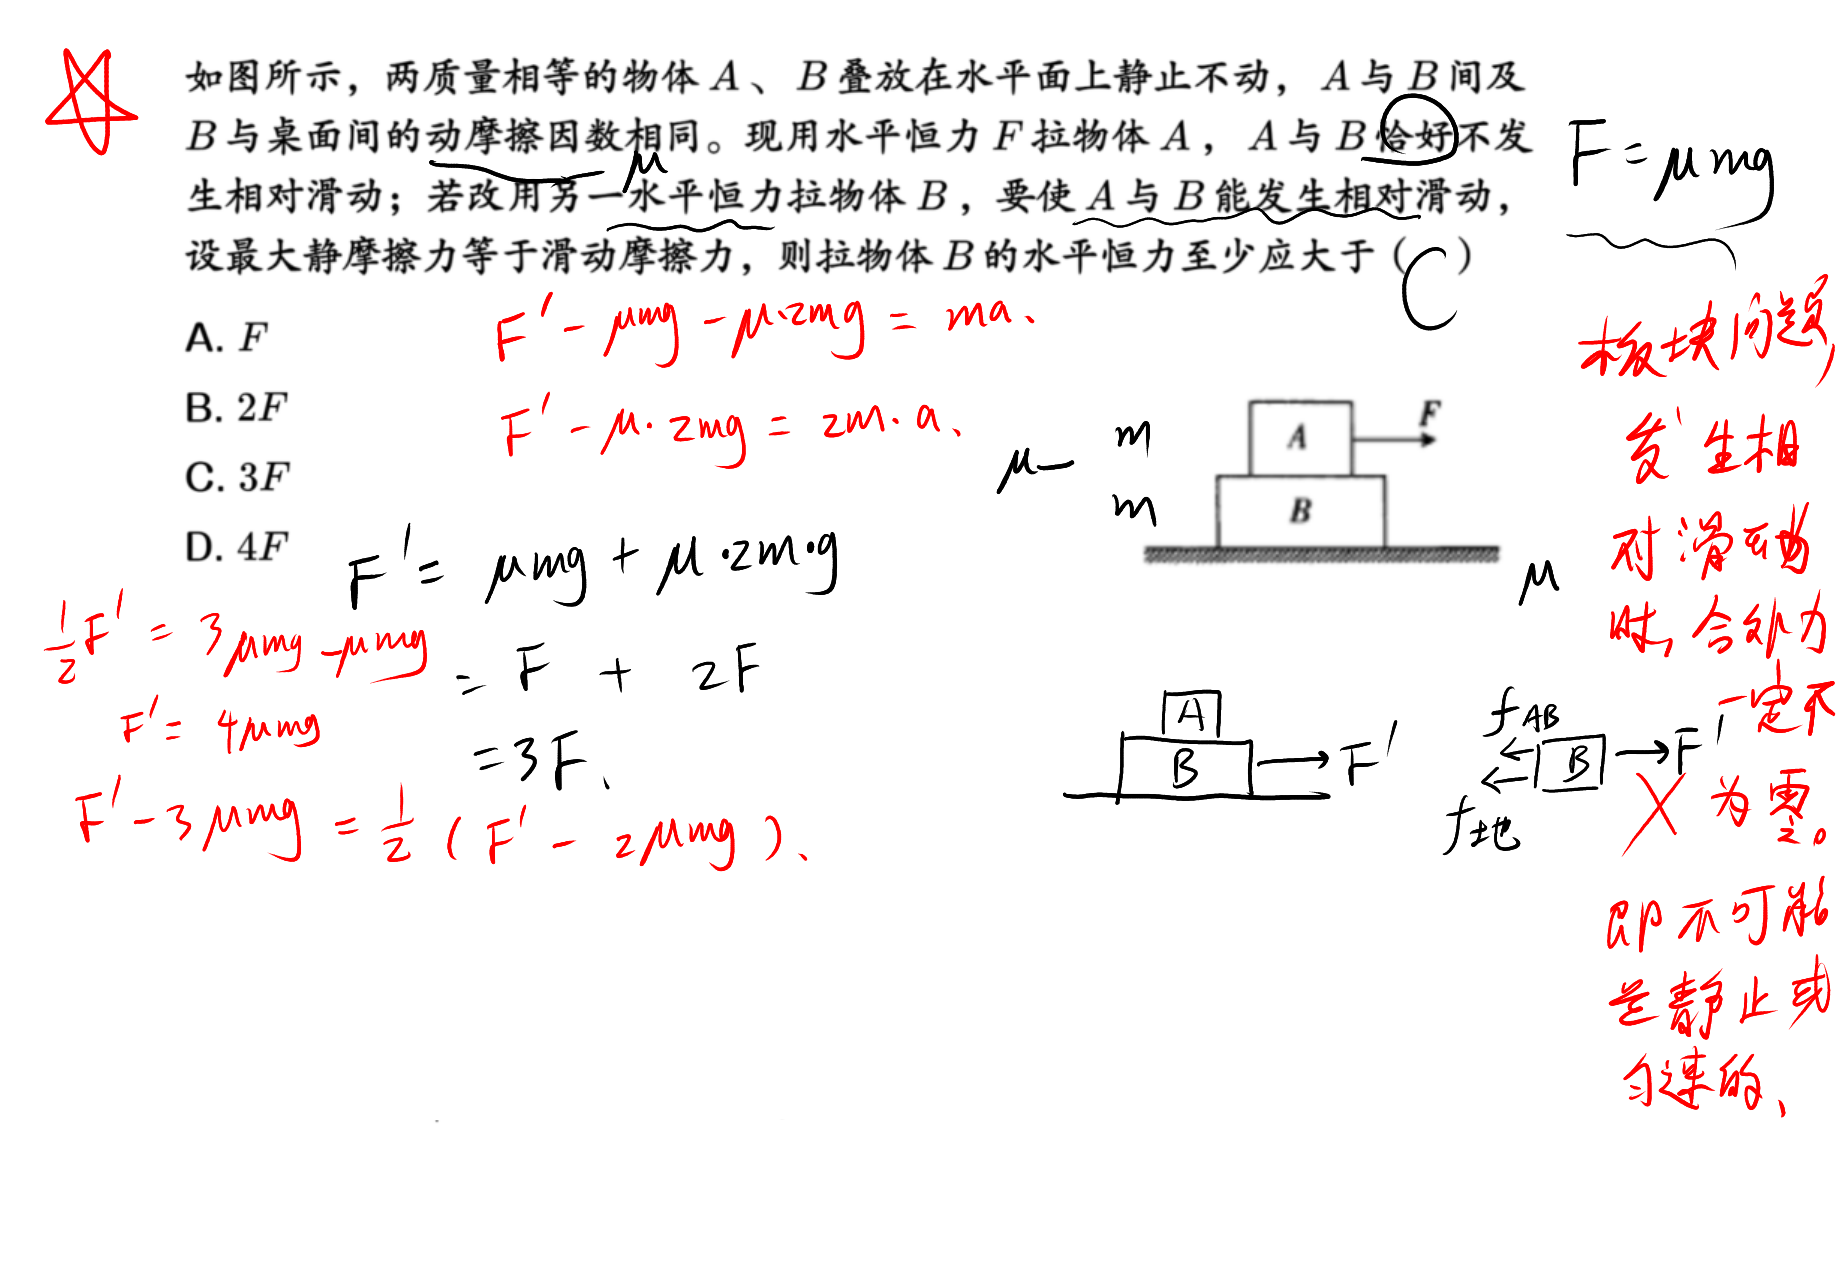 如图所示，两质量相等的物体 A 、 B 叠放在水平面上静止不动， A 与 B 间及
B 与桌面间的动摩擦因数相同。现用水平恒力 F 拉物体 A ， A 与 B 恰好不发
μ
F = μmg
生相对滑动；若改用另一水平恒力拉物体 B ，要使 A 与 B 能发生相对滑动，
设最大静摩擦力等于滑动摩擦力，则拉物体 B 的水平恒力至少应大于（ C ）
A. F
B. 2F
C. 3F
D. 4F
F′ - μmg - μ·2mg = ma、
F′ - μ·2mg = 2m·a、
μ
m
m
A
F
B
μ
F′ = μmg + μ·2m·g
= F + 2F
= 3F、
½F′ = 3μmg - μmg
F′ = 4μmg
F′ - 3μmg = ½ ( F′ - 2μmg )、
A
B
F′
f AB
B
F′
f地
板块问题，
发生相
对滑动
时，合外力
一定不
为零。
即不可能
是静止或
匀速的、